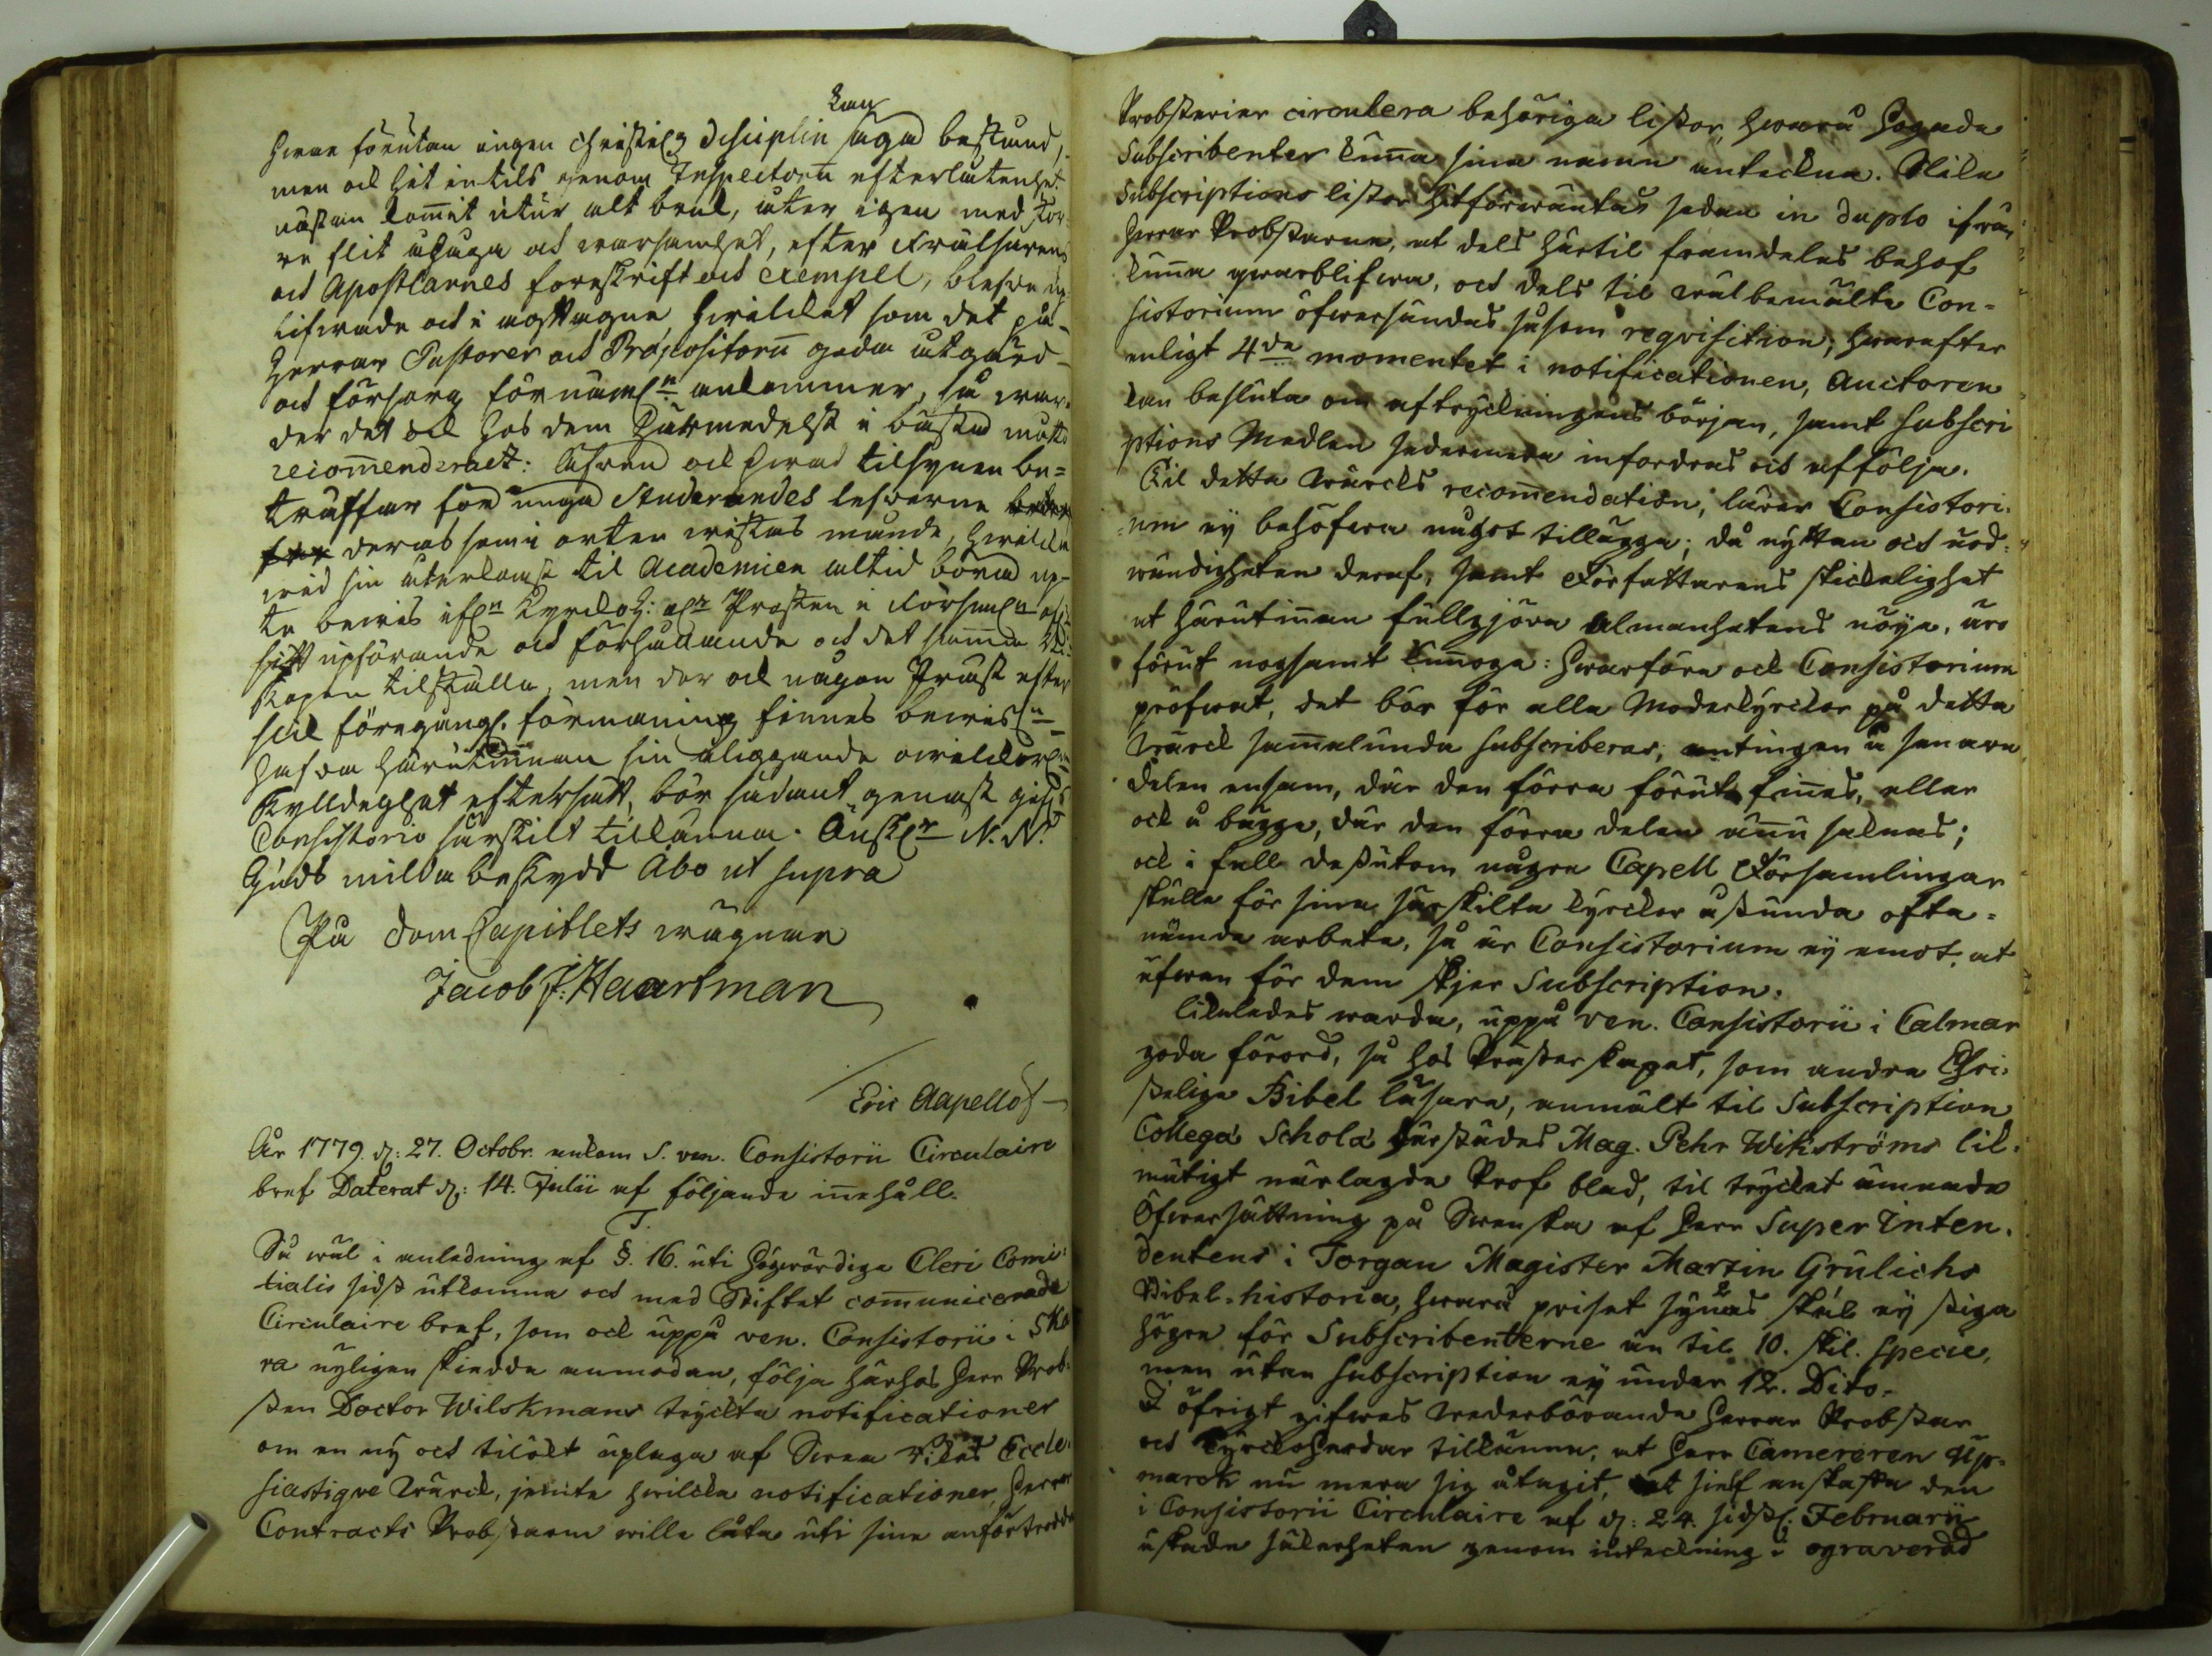 kan
hvar förutan ingen christelig disciplin äga bestånd,
men ock hit intils genom Inspectorn efterlåtenhet
nästan kommit utur alt bruk, åter igen med stör-
re flit och warsamhet, efter Frälsarens
och Apostlarnes föreskrift och exempel, blefve up-
lifwade och i agttagne hwilcket som det på
Herrar Pastorer och Præpositorum goda utgärd
och försorg förnäml:n ankommer, så war-
der det ock hos dem härmedelst i bästa mått
recommenderadt: Äfven ock hwad tilsynen be-
träffar för unga Studerandes lefverne
deras som i orten wistas månde, hwilcka
wid sin återkomst til Academien altid böra up-
te bewis ifr:n Kyrckoh: el:r Prosten i Församl:n
sitt upförande och förhållande och det samma
tilställa, men der ock någon Präst efter
föregång: förmaning finnes bewisl:n
hafva härutinnan sin åliggande
skylldeghet eftersatt, bör sådant genast gifvas
Consistorio särskilt tillkänna. Önsk:r N. N.
Guds milda beskydd Åbo ut supra
På Dom Capitlets wägnar
Jacob J: Haartman
Eric Aapellof
År 1779. d: 27. Octobr. ankom S. ven. Consistorii Circulaire
bref Daterat d: 14. Julii af följande innehåll.
T.
Så wäl i anledning af §. 16. uti Högwördige Cleri Comi-
tialis sidst utkomna och med Stiftet communicerade
Circulaire bref, som ock uppå ven. Consistorii i Ska
ra nyligen skiedde anmodan, följa härhos Herr Prob-
sten Doctor Wilskmans tryckta notificationer
om en ny och tilökt uplaga af Swea Rikes Eccle-
siastiqve Wärck, jemte hwilcka notificationer, Herrar
Contracts Probstarne wille låta uti sine anförtrodde
Probsterier circulera behöriga listor, hwarå hogade
Subscribenter kunna sina namn anteckna. Slika
Subscriptions listor hitförwäntas sedan in duplo ifrån
Herrar Probstarne, at dels härtil framdeles behof
kunna qwarblifwa, och dels til wälbemälte Con-
sistorium öfwersändas såsom reqvisition; hwarefter
enligt 4:de momentet i notificationen, Auctoren
kan besluta om aftryckningens början, samt subscri
ptions Medlen sedermera infordras och affölja.
Til detta Wärcks recommendation, lärer Consistori-
um ey behöfwa något tillägga; då nyttan och nöd-
wändigheten deraf, samt Författarens skickelighet
at härutinnan fullgjöra almänhetens nöye, äro
förut nogsamt kunnoga: hwarföre och Consistorium
pröfwat, det bör för alla Moderkyrckor på detta
Wärck sammalunda subscriberas, antingen å senare
delen ensam, där den förra förut finnes, eller
ock å bägge, där den förra delen ännu saknas;
ock i fall dessutom några Capell Församlingar
skulle för sina särskilta kyrckor åstunda ofta-
nämde arbete, så är Consistorium ey emot, at
äfwen för dem skjer Subscription.
Likaledes warda, uppå ven. Consistorii i Calmar
goda förord, så hos Prästerskapet, som andra Chri-
stelige Bibel läsare, anmält til Subscription
Collegæ Scholæ därstädes Mag. Pehr Wikströms lik-
mätigt närlagde Prof blad, til trycket ämnade
Öfwersättning på Swenska af Herr Super Inten-
dentens i Torgau Magister Martin Grulichs
Bibel-historia, hwarå priset synes skal ey stiga
högre för Subscribenterne än til 10. skil. specie,
men utan subscription ey under 12. Dito.
I öfrigt gifwes Wederbörande Herrar Probstar
och Kyrckoherdar tillkänna, at Herr Cameréren Up-
marck nu mera sig åtagit, at sielf anskaffa den
i Consistorii Circulaire af d: 24. sidstl: Februarii
äskade säkerheten genom inteckning i ograverad